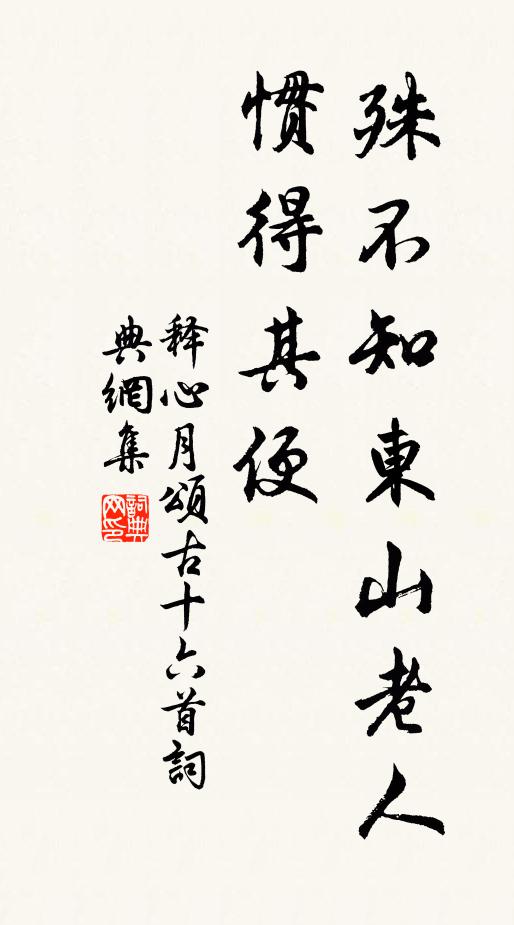 殊不知東山老人
慣得其便
释心月頌古十六首詞
典網集
詞典网印